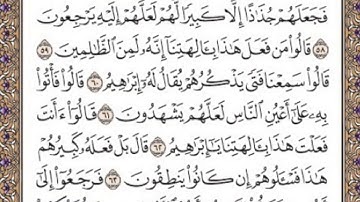 فَجَعَلَهُمْ جُذَٰذًا إِلَّا كَبِيرًا لَّهُمْ لَعَلَّهُمْ إِلَيْهِ يَرْجِعُونَ
٥٨ قَالُوا۟ مَن فَعَلَ هَٰذَا بِـَٔالِهَتِنَآ إِنَّهُۥ لَمِنَ ٱلظَّٰلِمِينَ ٥٩
قَالُوا۟ سَمِعْنَا فَتًى يَذْكُرُهُمْ يُقَالُ لَهُۥٓ إِبْرَٰهِيمُ ٦٠ قَالُوا۟ فَأْتُوا۟
بِهِۦ عَلَىٰٓ أَعْيُنِ ٱلنَّاسِ لَعَلَّهُمْ يَشْهَدُونَ ٦١ قَالُوٓا۟ ءَأَنتَ
فَعَلْتَ هَٰذَا بِـَٔالِهَتِنَا يَٰٓإِبْرَٰهِيمُ ٦٢ قَالَ بَلْ فَعَلَهُۥ كَبِيرُهُمْ
هَٰذَا فَسْـَٔلُوهُمْ إِن كَانُوا۟ يَنطِقُونَ ٦٣ فَرَجَعُوٓا۟ إِلَىٰٓ